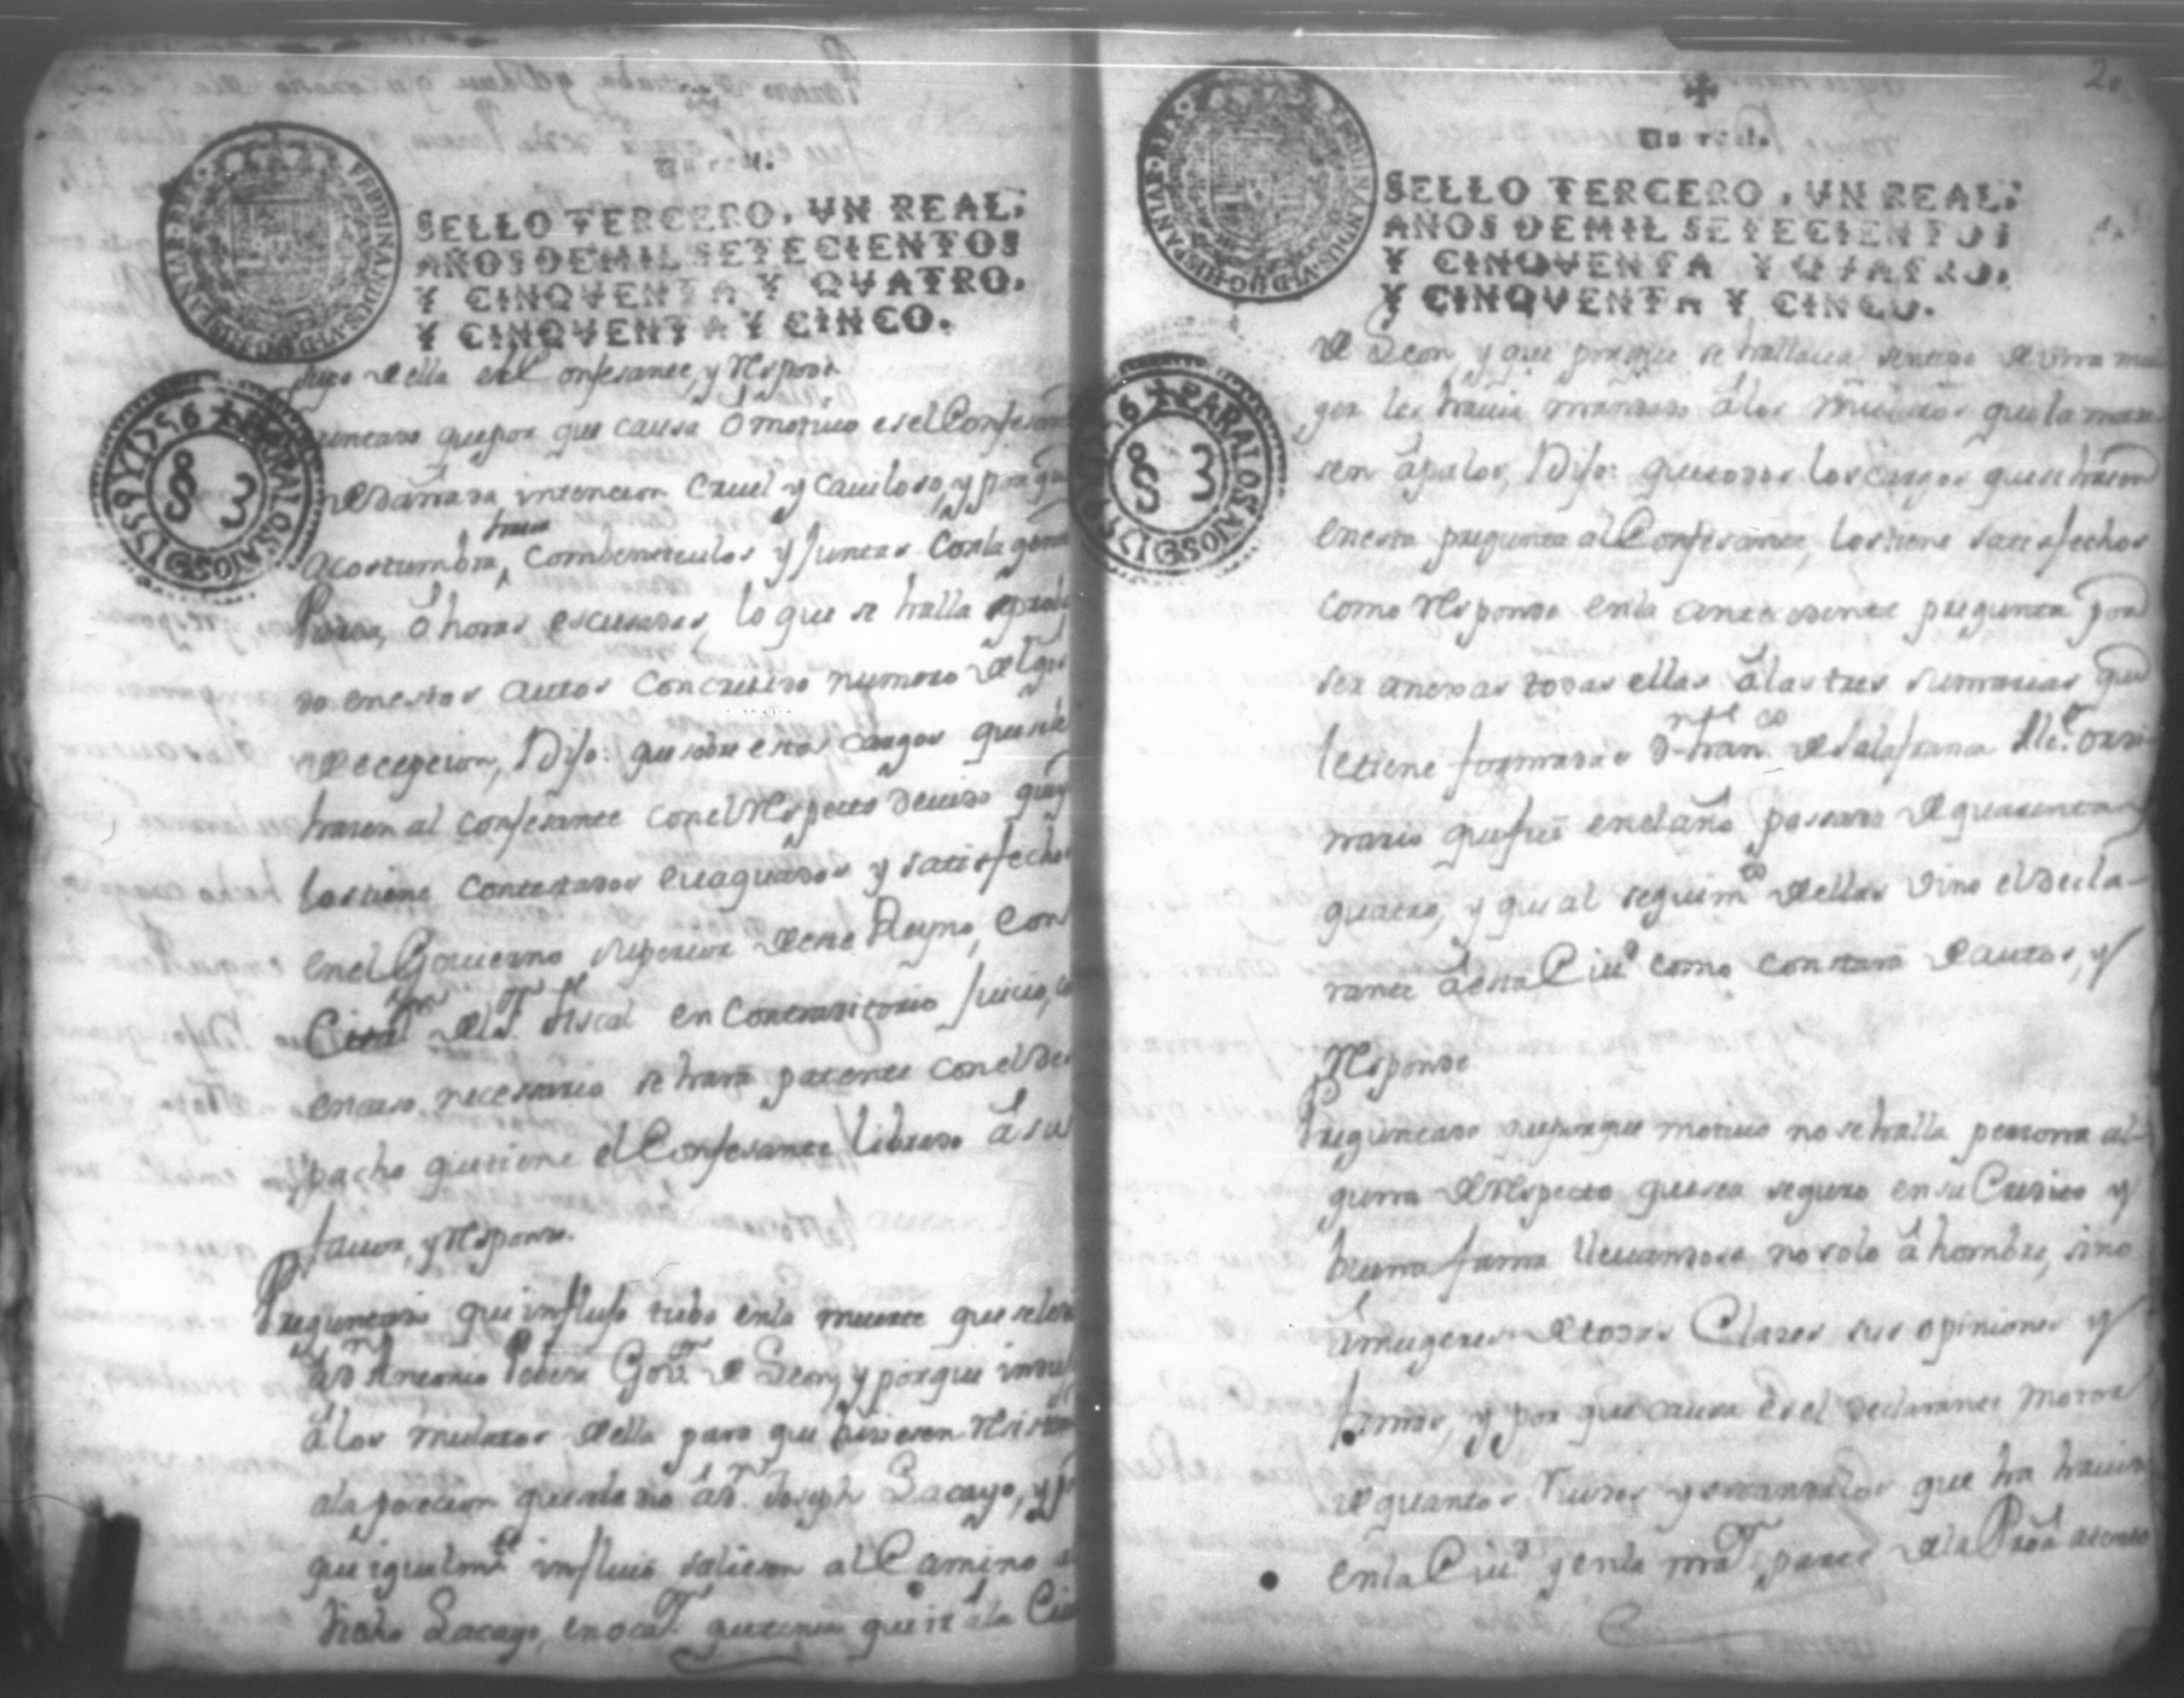 Un real.
SELLO TERCERO, VN REAL,
AÑOS DE MIL SETECIENTOS
Y CINQVENTA Y QVATRO,
Y CINQVENTA Y CINCO.
FERDINANDUS VI D G HISPANIAR REX
PARA LOS AÑOS DE 1755 Y 1756
S 3
della el Confesante, y Responde
que por que causa ó motivo es el Confesan
de dañada intencion Cruel y Caviloso, y por que
acostumbra hacer Combenticulos y Juntas Con la gente
ó horas escusadas, lo que se halla
do en estos autos con crecido numero de tgos
de ecepcion, Dijo: que sobre estos cargos que se le
hacen al confesante con el Respecto devido que
los tiene contestados evaquados y satisfechos
en el Govierno superior deste Reyno, con
Citaz.on del S.r fiscal en Contradictorio Juicio,
en caso necesario se hará patente con el des
pacho que tiene el Confesante librado á su
favor, y Responde.
Preguntado que influjo tubo en la muerte que se le
á Dn Antonio Gov.or de Leon, y porque
á los mulatos della para que hiciesen Resisten
a la posecion que se le dio á Dn. Joseph Lacayo, y
que igualm.te influió saliesen al Camino
dicho Lacayo, en ocas.on que tenia que ir á la Ciu
2.
Un real.
SELLO TERCERO, VN REAL,
AÑOS DE MIL SETECIENTOS
Y CINQVENTA Y QVATRO,
Y CINQVENTA Y CINCO.
FERDINANDUS VI D G HISPANIAR REX
PARA LOS AÑOS DE 1755 Y 1756
S 3
de Leon, y que porque se hallava sentido de una mu
ger les havia mandado á los mulatos que la mata
sen á palos, Dijo: que todos los cargos que se hacen
en esta pregunta al Confesante, los tiene satisfechos
como Responde en la antecedente pregunta por
ser anexas todas ellas á las tres sumarias que
le tiene formadas Dn Fran.co de Salafranca Alc.e ordi
nario que fué en el año passado de quarenta y
quatro, y que al seguim.to dellas vino el decla-
rante á esta Ciu.d como constará de autos, y
Responde
Preguntado que porque motivo no se halla persona al-
guna de Respecto que sea seguro en su Credito y
buena fama llevandose no solo á hombre, sino
á mugeres de todas Clases sus opiniones y
famas, y por que causa es el declarante motor
de quantos ruidos y escandalos que ha havido
en la Ciu.d y en la mr.a parte de la Prov.a